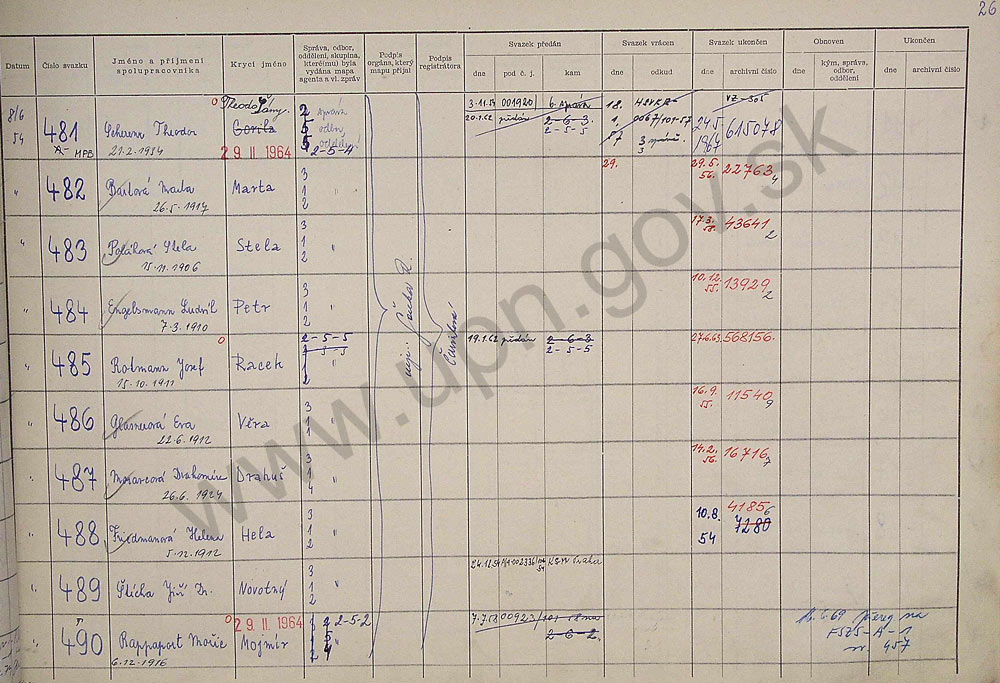 26
Datum
Číslo svazku
Jméno a příjmení
spolupracovníka
Krycí jméno
Správa, odbor,
oddělení, skupina,
které(mu) byla
vydána mapa
agenta a vl. zpráv
Podpis
orgána, který
mapu přijal
Podpis
registrátora
Svazek předán
dne
pod č. j.
kam
Svazek vrácen
dne
odkud
Svazek ukončen
dne
archivní číslo
Obnoven
dne
kým, správa,
odbor,
oddělení
Ukončen
dne
archivní číslo
8/6
54
481
A- MPB
Theodor
21.2.1934
29 II 1964
2-5-4
3.11.54 001920/ 6. správa
20.1.62 předán 2-6-3
2-5-5
18.
1.
57
24.5.
1967
615078
482
Bartová Marta
26.5.1917
Marta
3
1
2
29.
29.5.
56.
22763
4
483
Poláková Stela
15.11.1906
Stela
3
1
2
17.3.
58.
43641
2
484
Engelsmann Ludvík
7.3.1910
Petr
3
1
2
10.12.
55.
13929
2
485
Rotmann Josef
15.10.1911
Racek
2-5-5
19.1.62 předán 2-6-3
2-5-5
27.6.63.
568156.
486
Glasnerová Eva
22.6.1912
Věra
3
3
1
16.9.
55.
11540
9
487
Drahomíra
26.6.1924
Drahuš
3
1
4
14.2.
56.
16716
7
488
Friedmanová Helena
5.12.1912
Hela
3
1
2
10.8.
54
4185
6
7280
489
Šlicha Jiří Dr.
Novotný
3
1
2
Praha
490
Rappaport Mořic
6.12.1916
29 II 1964
Mojmír
2-5-2
7.7.58 00923/
2-6-2
přereg na
FSZS-A-1
457
www.upn.gov.sk